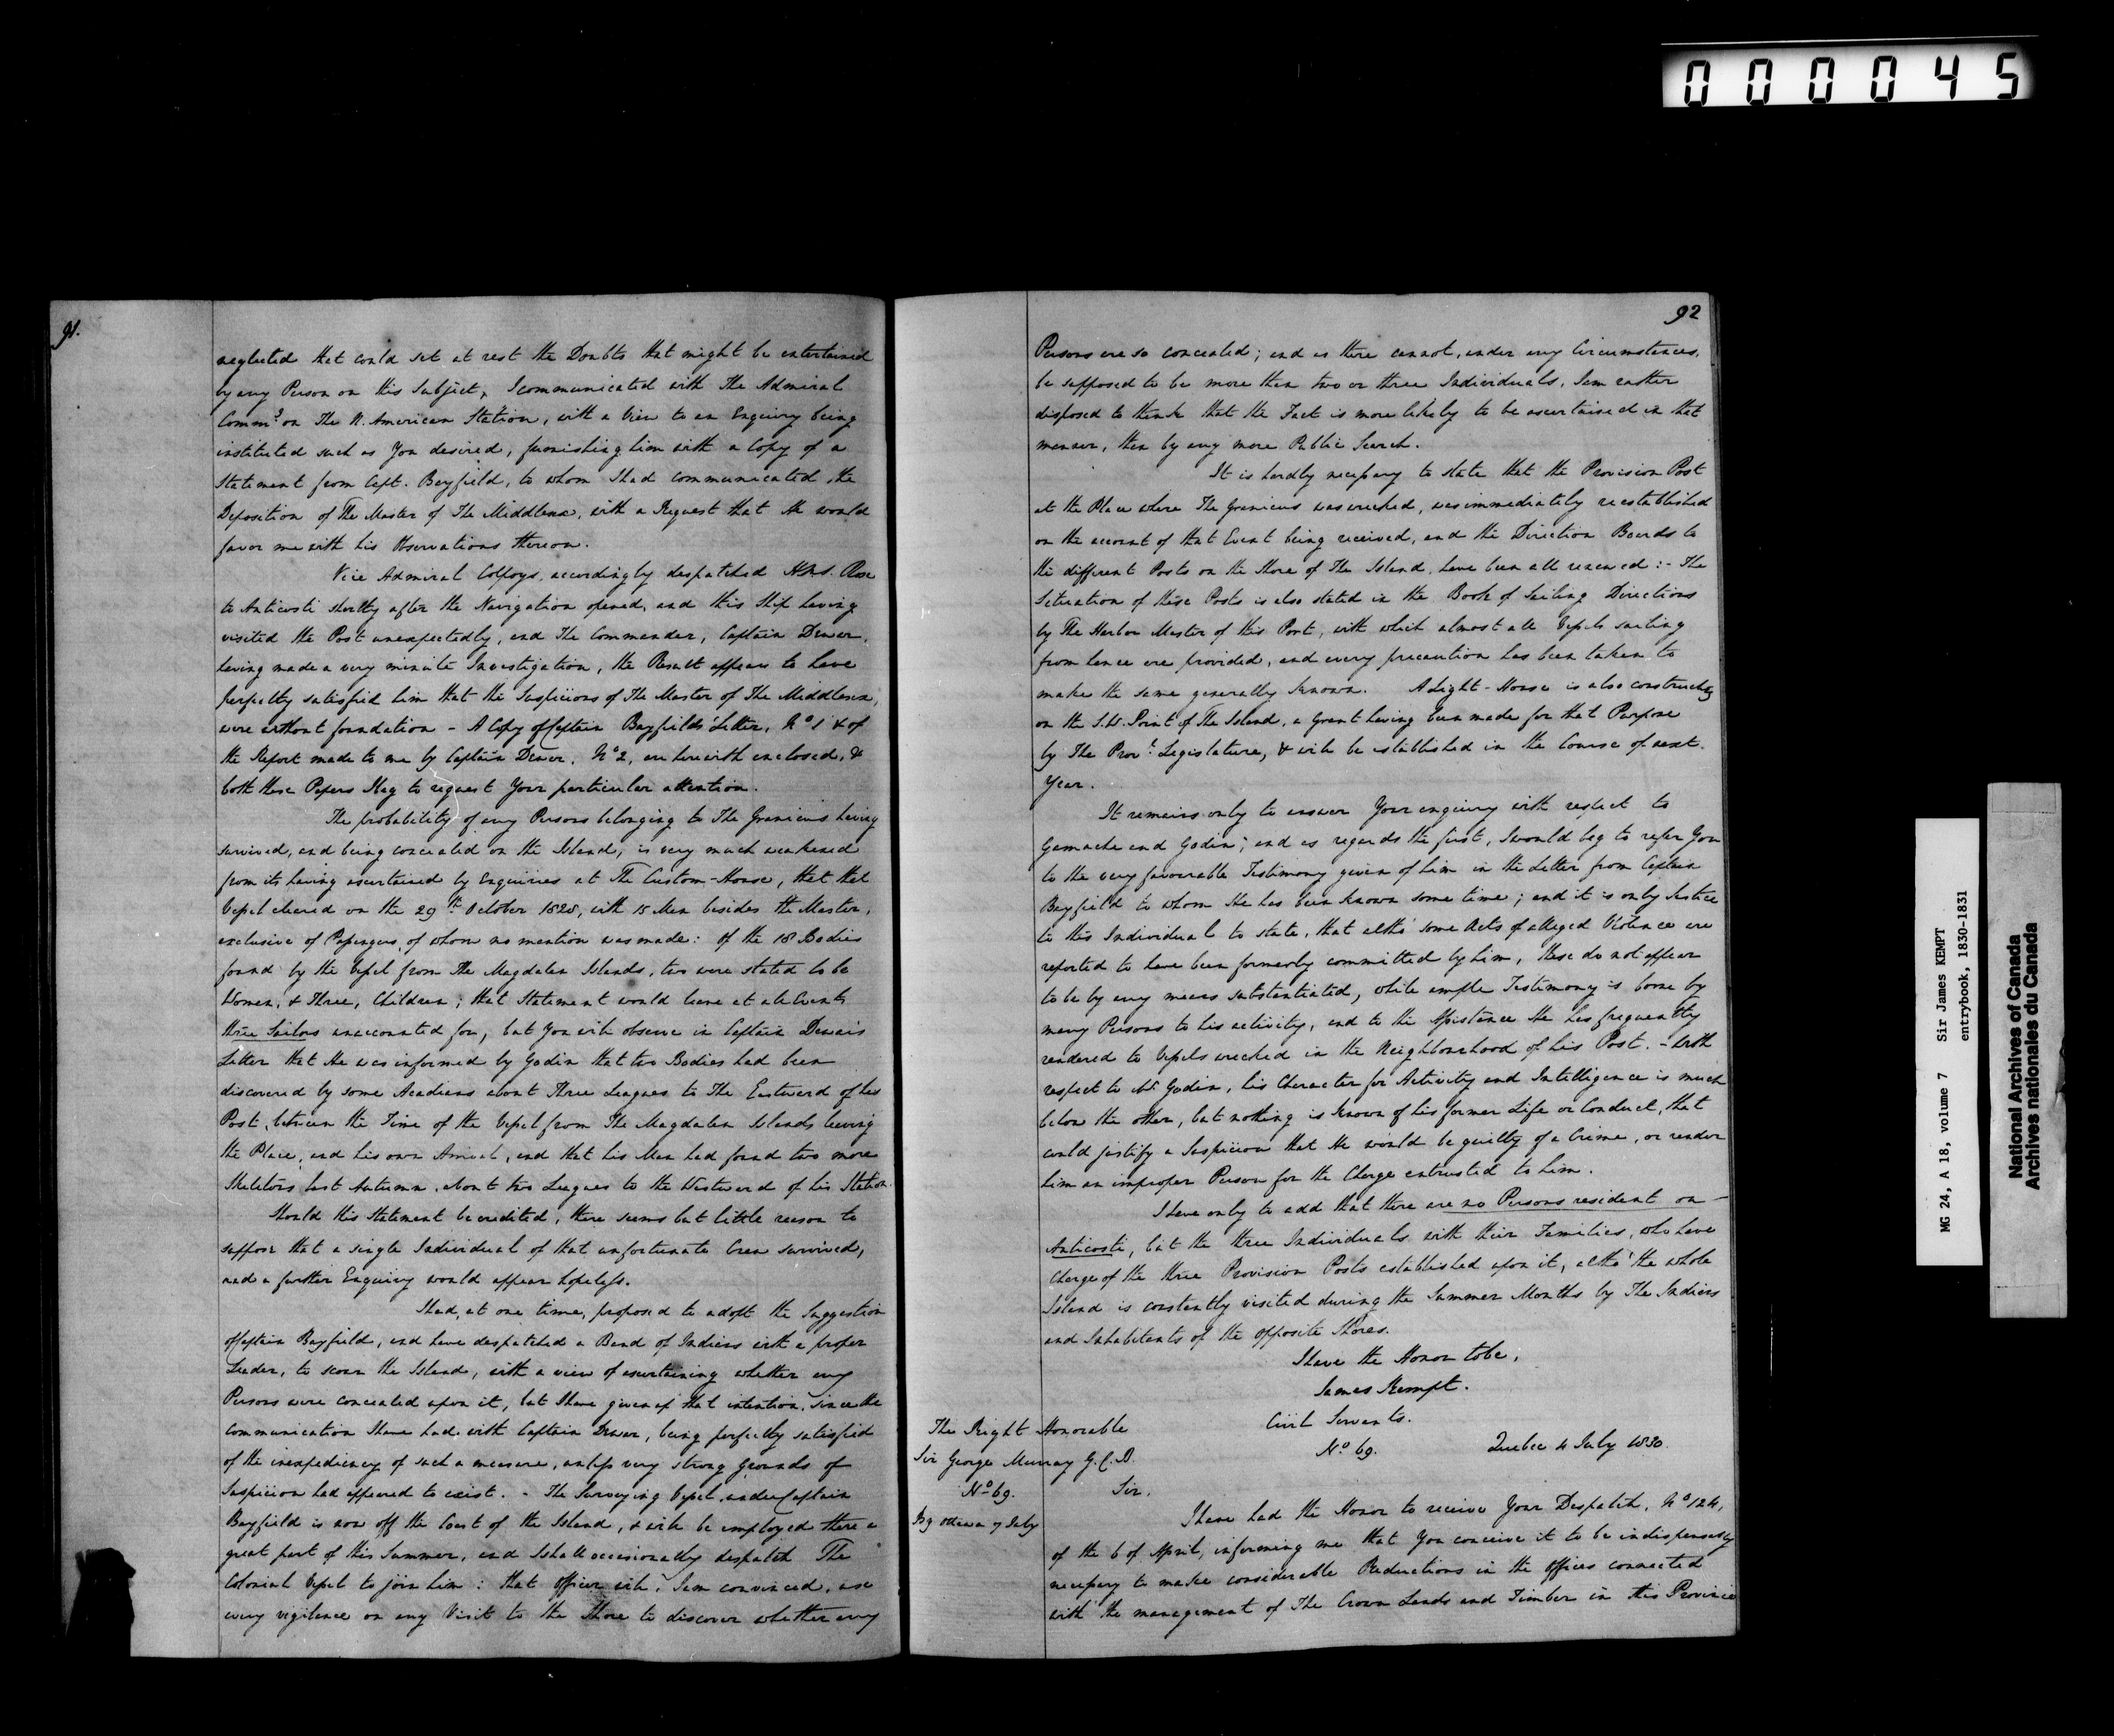 000045
91.
neglected that could set at rest the Doubts that might be entertained
by any Person on this Subject, I communicated with The Admiral
Comm.g on The N. American Station, with a View to an Enquiry being
instituted such as You desired, furnishing him with a Copy of a
Statement from Capt. Bayfield, to whom I had communicated the
Deposition of The Master of The Middlesex, with a Request that He would
favor me with his Observations thereon.
Vice Admiral Colpoys, accordingly despatched H.M.S. Rose
to Anticosti shortly after the Navigation opened, and this Ship having
visited the Post unexpectedly, and The Commander, Captain Dewar,
having made a very minute Investigation, the Result appears to have
perfectly satisfied him that the Suspicions of The Master of The Middlesex,
were without foundation – A Copy of Captain Bayfield's Letter, No 1 & of
the Report made to me by Captain Dewar, No 2, are herewith enclosed, &
both these Papers I beg to request Your particular attention.
The probability of any Persons belonging to The Granicus having
survived, and being concealed on the Island, is very much weakened
from its having ascertained by Enquiries at The Custom-House, that that
Vessel cleared on the 29th October 1828, with 15 Men besides the Master,
exclusive of Passengers, of whom no mention was made: Of the 18 Bodies
found by the Vessel from The Magdalen Islands, two were stated to be
Women, & Three, Children; that Statement would leave at all Events
three Sailors unaccounted for, but You will observe in Captain Dewar's
Letter that He was informed by Godin that two Bodies had been
discovered by some Acadians about Three Leagues to The Eastward of his
Post, between the Time of the Vessel from The Magdalen Islands leaving
the Place, and his own Arrival, and that his Men had found two more
Skeletons last Autumn, about two Leagues to the Westward of his Station.
Should this Statement be credited, there seems but little reason to
suppose that a single Individual of that unfortunate Crew survived,
and a further Enquiry would appear hopeless.
I had, at one time, proposed to adopt the Suggestion
of Captain Bayfield, and have despatched a Band of Indians with a proper
Leader, to scour the Island, with a view of ascertaining whether any
Persons were concealed upon it, but I have given up that intention, since the
Communication I have had with Captain Dewar, being perfectly satisfied
of the inexpediency of such a measure, unless very strong grounds of
Suspicion had appeared to exist. – The Surveying Vessel, under Captain
Bayfield is now off the Coast of the Island, & will be employed there a
great part of this Summer, and I shall occasionally despatch The
Colonial Vessel to join him: that Officer will, I am convinced, use
every vigilance on any Visit to the Shore to discover whether any
92
Persons are so concealed; and as there cannot, under any Circumstances,
be supposed to be more than two or three Individuals, I am rather
disposed to think that the Fact is more likely to be ascertained in that
manner, than by any more Public Search.
It is hardly necessary to state that the Provision Post
at the Place where The Granicus was wrecked, was immediately reestablished
on the account of that Event being received, and the Direction Boards to
the different Posts on the Shore of The Island, have been all renewed: – The
Situation of these Posts is also stated in the Book of Sailing Directions
by The Harbor Master of this Port, with which almost all Vessels sailing
from hence are provided, and every precaution has been taken to
make the same generally known. A Light-House is also constructing
on the S.W. Point of The Island, a Grant having been made for that Purpose
by The Prov.l Legislature, & will be established in the Course of next
Year.
It remains only to answer Your enquiry with respect to
Gamache and Godin; and as regards the first, I would beg to refer You
to the very favourable Testimony given of him in the Letter from Captain
Bayfield to whom He has been known some time; and it is only Justice
to this Individual to state, that altho' some Acts of alleged Violence are
reported to have been formerly committed by him, these do not appear
to be by any means substantiated, while ample Testimony is borne by
many Persons to his activity, and to the Assistance He has frequently
rendered to Vessels wrecked in the Neighbourhood of his Post. – With
respect to Mr. Godin, his Character for Activity and Intelligence is much
below the other, but nothing is known of his former Life or Conduct, that
could justify a Suspicion that He would be guilty of a Crime, or render
him an improper Person for the Charge entrusted to him.
I have only to add that there are no Persons resident on –
Anticosti, but the three Individuals with their Families, who have
Charge of the three Provision Posts established upon it, altho' the whole
Island is constantly visited during the Summer Months by The Indians
and Inhabitants of the opposite Shores.
I have the Honor to be,
James Kempt.
The Right Honorable
Sir George Murray G.C.B.
No 69.
Civil Servants.
No 69. Quebec 4 July 1830.
Sir,
I have had the Honor to receive Your Despatch, No 124,
of the 6 of April, informing me that You conceive it to be indispensably
necessary to make considerable Reductions in the Offices connected
with the management of The Crown Lands and Timber in this Province
MG 24, A 18, volume 7 Sir James KEMPT
entrybook, 1830-1831
National Archives of Canada
Archives nationales du Canada